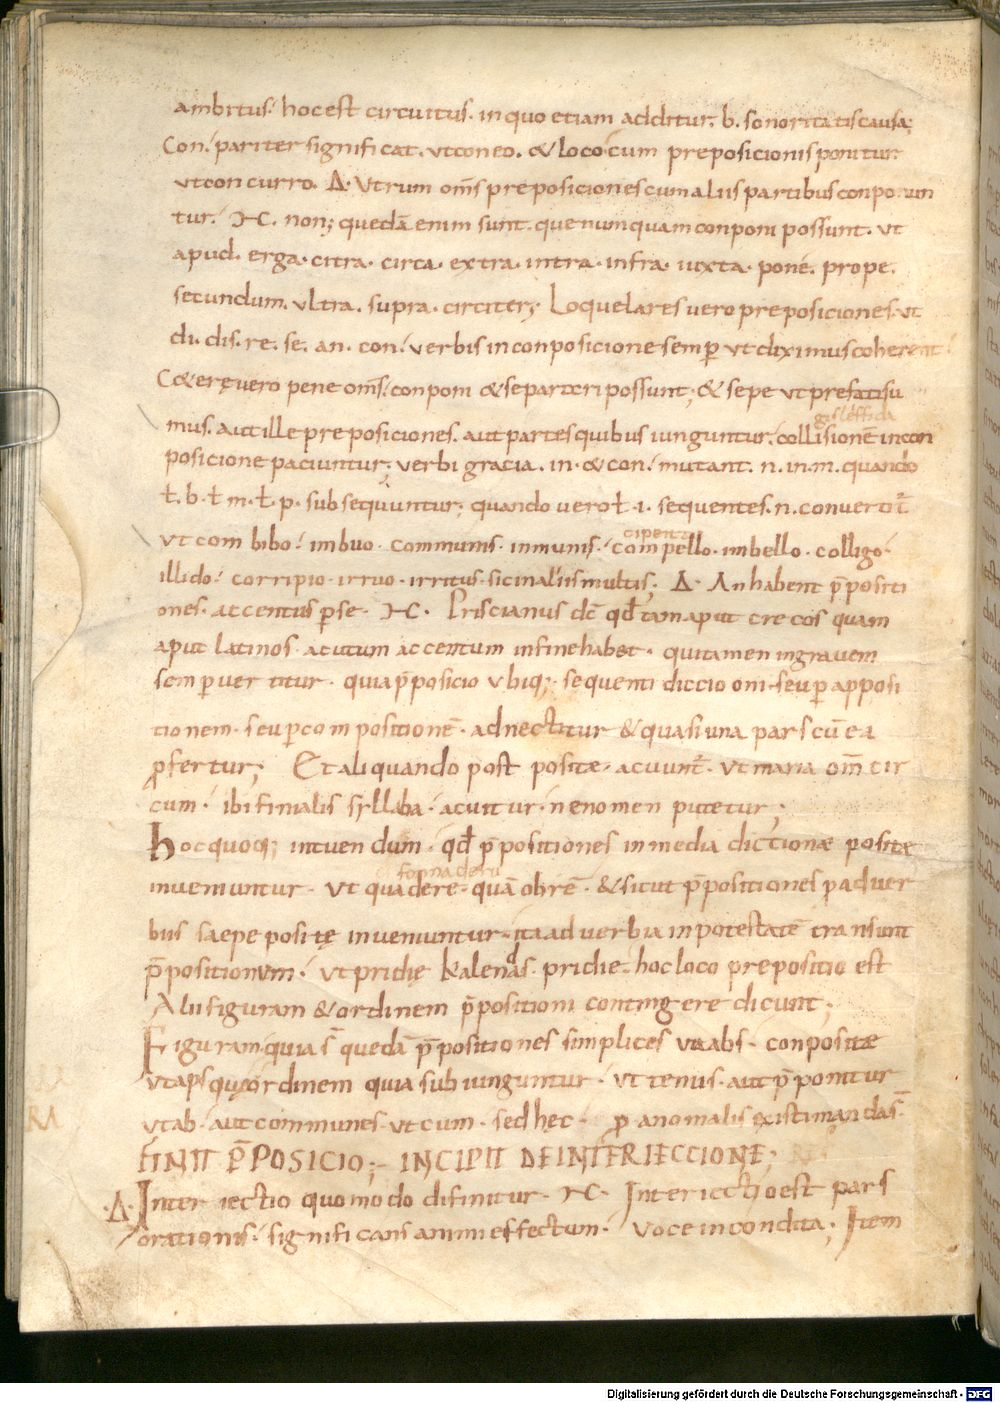 ambitus. hoc est circuitus. in quo etiam additur. b. sonoritatis causa;
Con. pariter significat. ut coneo. & loco cum preposicionis ponitur.
ut con curro. Δ. Utrum om̅s preposiciones cum aliis partibus conponun
tur. non; quedā enim sunt. que numquam conponi possunt. ut
apud. erga. citra. circa. extra. intra. infra. iuxta. pone. prope.
secundum. ultra. supra. circiter; Loquelares vero preposiciones. ut
di. dis. re. se. an. con. verbis in conposicione semp̲ ut diximus coherent
C&erę vero pene om̅s. conponi & separari possunt; & sepe ut prefati su
mus. aut ille preposiciones. aut partes quibus iunguntur. collisionē in con
posicione paciuntur; verbi gracia. in. & con. mutant. n. in. m. quando
ł. b. ł m. ł. p. subsequuntur; quando vero ł. i. sequentes. n. convertit̄
ut com bibo. imbuo. communis. inmunis. compello. imbello. colligo.
illido. corripio. irruo. irritus. sic in aliis multis; Δ. An habent p̄positi
ones. accentus p̲ se. Priscianus dc̄ qd̄ tam aput crecos quam
aput latinos. acutum accentum in fine habet. qui tamen in gravem
semp̲ vertitur. quia p̄posicio ubiq;. sequenti diccioni. seu p̲ apposi
tionem. seu p̲ compositionē. adnectitur & quasi una pars cū ea
p̲fertur; Et aliquando post positæ. acuunt̄. ut maria om̄ cir
cum. ibi finalis syllaba. acuitur. ne nomen putetur;
Hoc quoq; intuendum. qd̄ p̄positiones in media dictionæ positæ
inveniuntur. ut quadere. quā obrē. & sicut p̄positiones p̲ adver
biis saepe positę inveniuntur. ita adverbia in potestatē transiunt
p̄positionum. ut pridie kalendas. pridie. hoc loco prepositio est
Alii figuram & ordinem p̄positioni contingere dicunt;
Figuram. quia s̄ quedā p̄positiones simplices ut abs. conpositæ
ut apsque. ordinem quia subiunguntur. ut tenus. aut p̄ponitur
ut ab. aut communes. ut cum. sed hec. p̲ anomalis existimandas̄
FINIT P̄POSICIO; INCIPIT DE INTERIECCIONE;
Δ. Interiectio quomodo difinitur. Interiectio est pars
orationis. significans animi effectum. voce incondita; Item
Digitalisierung gefördert durch die Deutsche Forschungsgemeinschaft - DFG